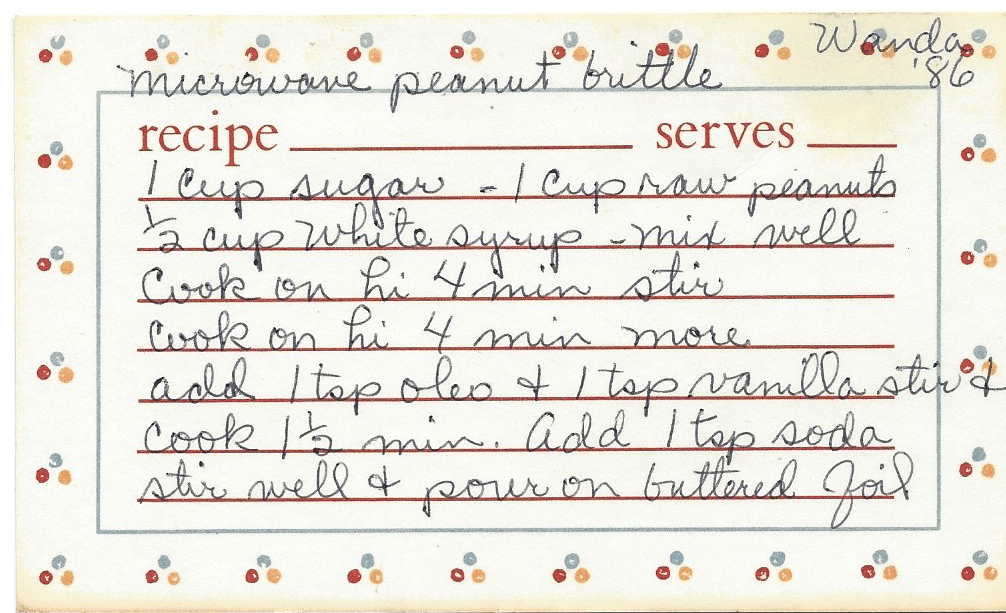 Wanda
'86
microwave peanut brittle
recipe serves
1 cup sugar - 1 cup raw peanuts
½ cup white syrup - mix well
Cook on hi 4 min stir
Cook on hi 4 min more
add 1 tsp oleo & 1 tsp vanilla stir &
cook 1½ min. Add 1 tsp soda
stir well & pour on buttered foil